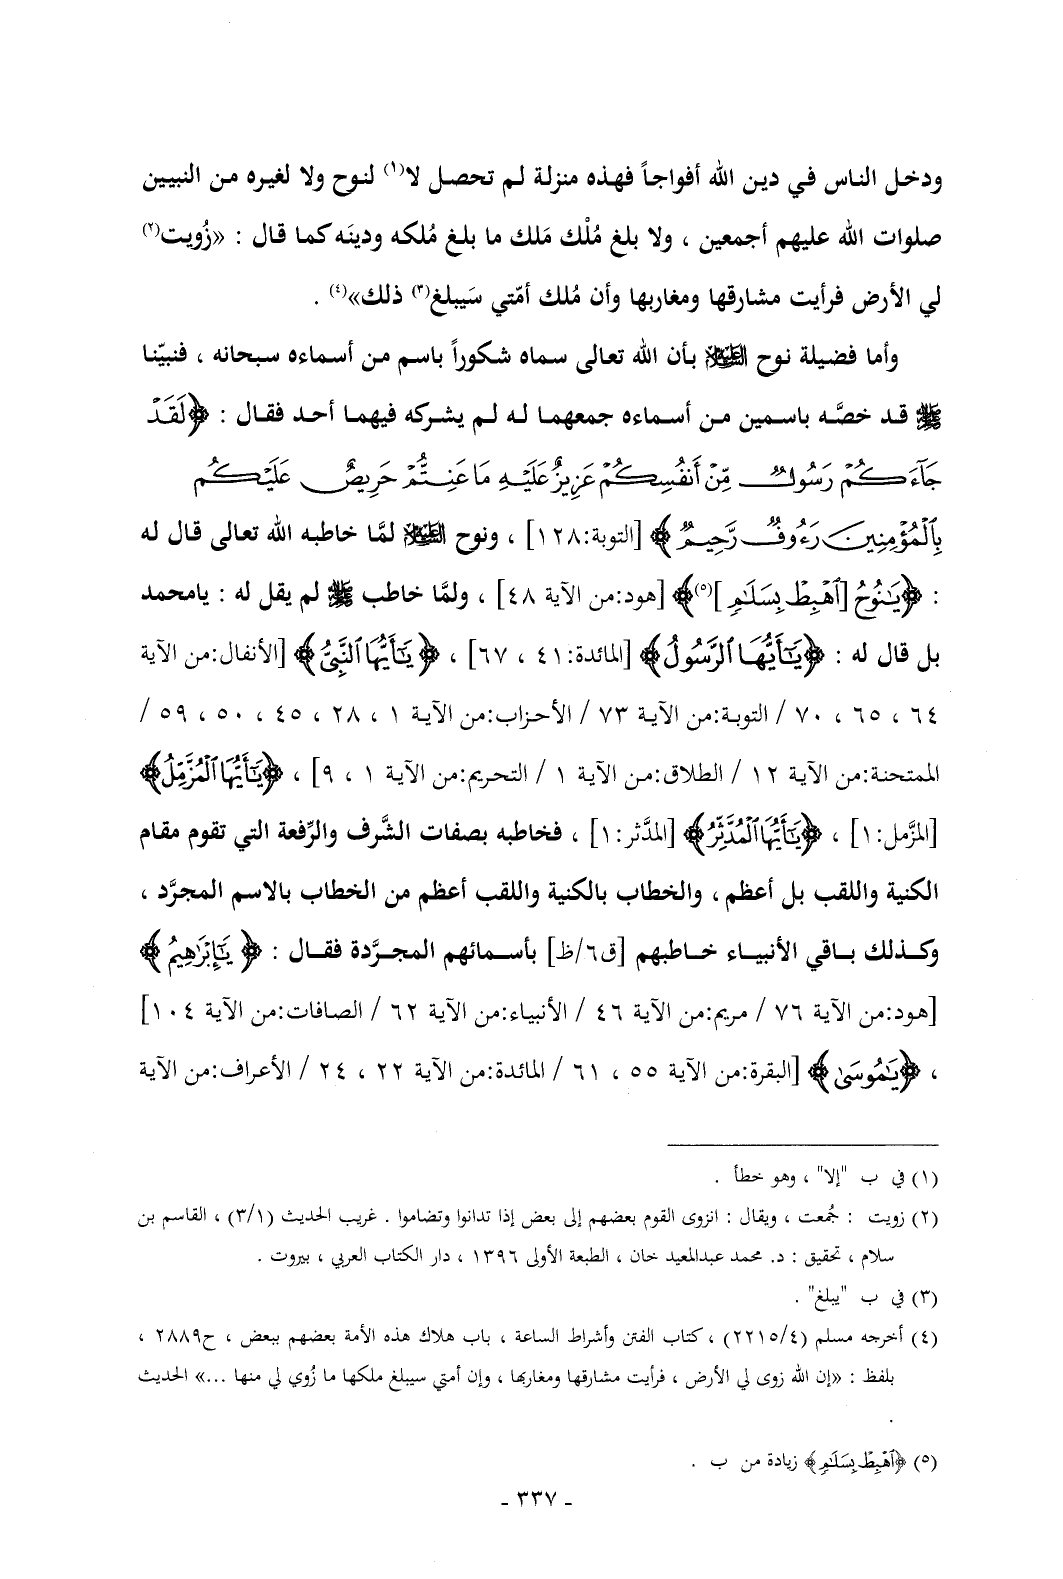 ودخل الناس في دين الله أفواجاً فهذه منزلة لم تحصل لا(١) لنوح ولا لغيره من النبيين
صلوات الله عليهم أجمعين ، ولا بلغ مُلْك مَلك ما بلغ مُلكه ودينَه كما قال : «زُويت(٢)
لي الأرض فرأيت مشارقها ومغاربها وأن مُلك أمّتي سَيبلغ(٣) ذلك»(٤) .
وأما فضيلة نوح عليه السلام بأن الله تعالى سماه شكوراً باسم من أسماءه سبحانه ، فنبيّنا
ﷺ قد خصَّه باسمين من أسماءه جمعهما له لم يشركه فيهما أحد فقال : ﴿لَقَدْ
جَآءَكُمْ رَسُولٌ مِّنْ أَنفُسِكُمْ عَزِيزٌ عَلَيْهِ مَا عَنِتُّمْ حَرِيصٌ عَلَيْكُم
بِٱلْمُؤْمِنِينَ رَءُوفٌ رَّحِيمٌ﴾ [التوبة:١٢٨] ، ونوح عليه السلام لمَّا خاطبه الله تعالى قال له
: ﴿يَـٰنُوحُ [ٱهْبِطْ بِسَلَـٰمٍ](٥)﴾ [هود:من الآية ٤٨] ، ولمَّا خاطب ﷺ لم يقل له : يامحمد
بل قال له : ﴿يَـٰٓأَيُّهَا ٱلرَّسُولُ﴾ [المائدة:٤١ ، ٦٧] ، ﴿يَـٰٓأَيُّهَا ٱلنَّبِىُّ﴾ [الأنفال:من الآية
٦٤ ، ٦٥ ، ٧٠ / التوبة:من الآية ٧٣ / الأحزاب:من الآية ١ ، ٢٨ ، ٤٥ ، ٥٠ ، ٥٩ /
الممتحنة:من الآية ١٢ / الطلاق:من الآية ١ / التحريم:من الآية ١ ، ٩] ، ﴿يَـٰٓأَيُّهَا ٱلْمُزَّمِّلُ﴾
[المزَّمل:١] ، ﴿يَـٰٓأَيُّهَا ٱلْمُدَّثِّرُ﴾ [المدَّثر:١] ، فخاطبه بصفات الشَّرف والرِّفعة التي تقوم مقام
الكنية واللقب بل أعظم ، والخطاب بالكنية واللقب أعظم من الخطاب بالاسم المجرَّد ،
وكذلك باقي الأنبياء خاطبهم [ق٦/ظ] بأسمائهم المجرَّدة فقال : ﴿ يَـٰٓإِبْرَٰهِيمُ ﴾
[هود:من الآية ٧٦ / مريم:من الآية ٤٦ / الأنبياء:من الآية ٦٢ / الصافات:من الآية ١٠٤]
، ﴿يَـٰمُوسَىٰ﴾ [البقرة:من الآية ٥٥ ، ٦١ / المائدة:من الآية ٢٢ ، ٢٤ / الأعراف:من الآية
(١) في ب "إلا" ، وهو خطأ .
(٢) زويت : جُمعت ، ويقال : انزوى القوم بعضهم إلى بعض إذا تدانوا وتضاموا . غريب الحديث (٣/١) ، القاسم بن
سلام ، تحقيق : د. محمد عبدالمعيد خان ، الطبعة الأولى ١٣٩٦ ، دار الكتاب العربي ، بيروت .
(٣) في ب "يبلغ" .
(٤) أخرجه مسلم (٢٢١٥/٤) ، كتاب الفتن وأشراط الساعة ، باب هلاك هذه الأمة بعضهم ببعض ، ح٢٨٨٩ ،
بلفظ : «إن الله زوى لي الأرض ، فرأيت مشارقها ومغاربها ، وإن أمتي سيبلغ ملكها ما زُوي لي منها ...» الحديث
.
(٥) ﴿ٱهْبِطْ بِسَلَـٰمٍ﴾ زيادة من ب .
- ٣٣٧ -